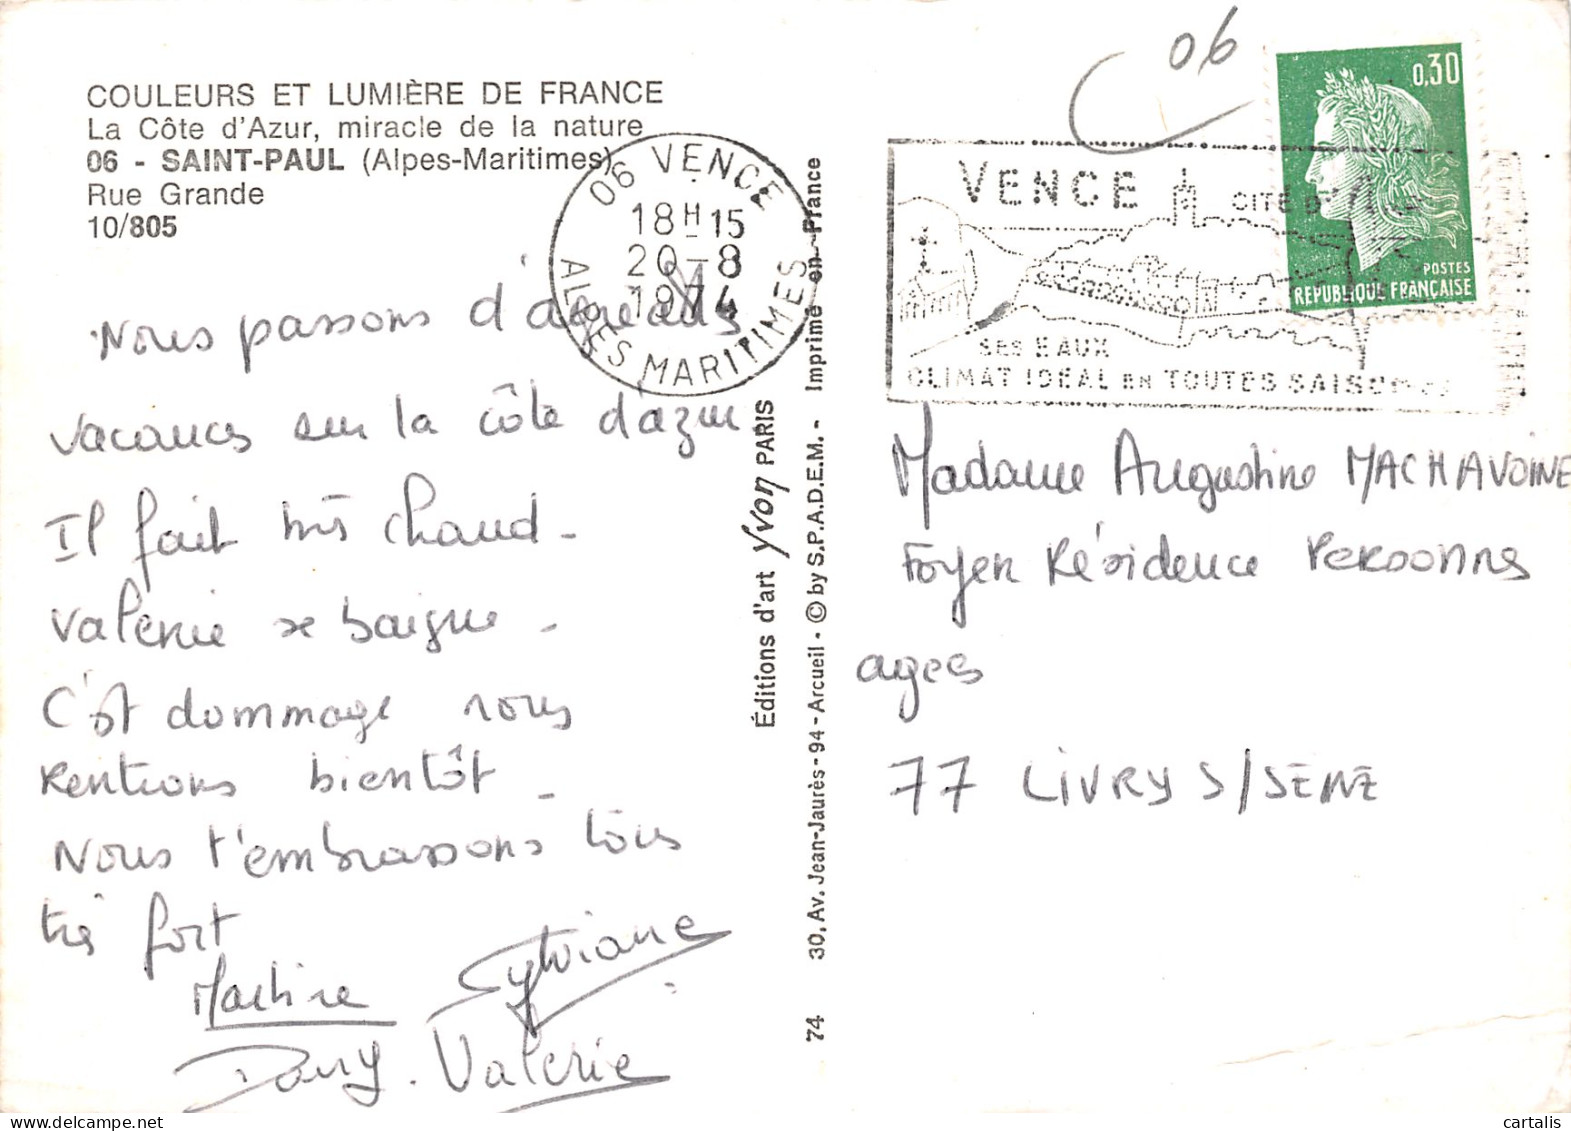 COULEURS ET LUMIÈRE DE FRANCE
La Côte d'Azur, miracle de la nature
06 - SAINT-PAUL (Alpes-Maritimes)
Rue Grande
10/805
Nous passons d'agréables
vacances sur la côte d'azur
Il fait très chaud -
Valérie se baigne -
C'est dommage nous
Rentrons bientôt -
Nous t'embrassons tous
très fort
Martine Sylviane
Dany. Valérie
06 VENCE
18H15
20-8
1974
ALPES MARITIMES
Éditions d'art Yvon PARIS
74 30, Av. Jean-Jaurès - 94 - Arcueil - © by S.P.A.D.E.M. - Imprimé en France
06
VENCE CITÉ D'
SES EAUX
CLIMAT IDÉAL EN TOUTES SAISONS
0,30
POSTES
RÉPUBLIQUE FRANÇAISE
Madame Augustine MACHAVOINE
Foyer Résidence Personnes
agées
77 LIVRY S/SEINE
cartalis